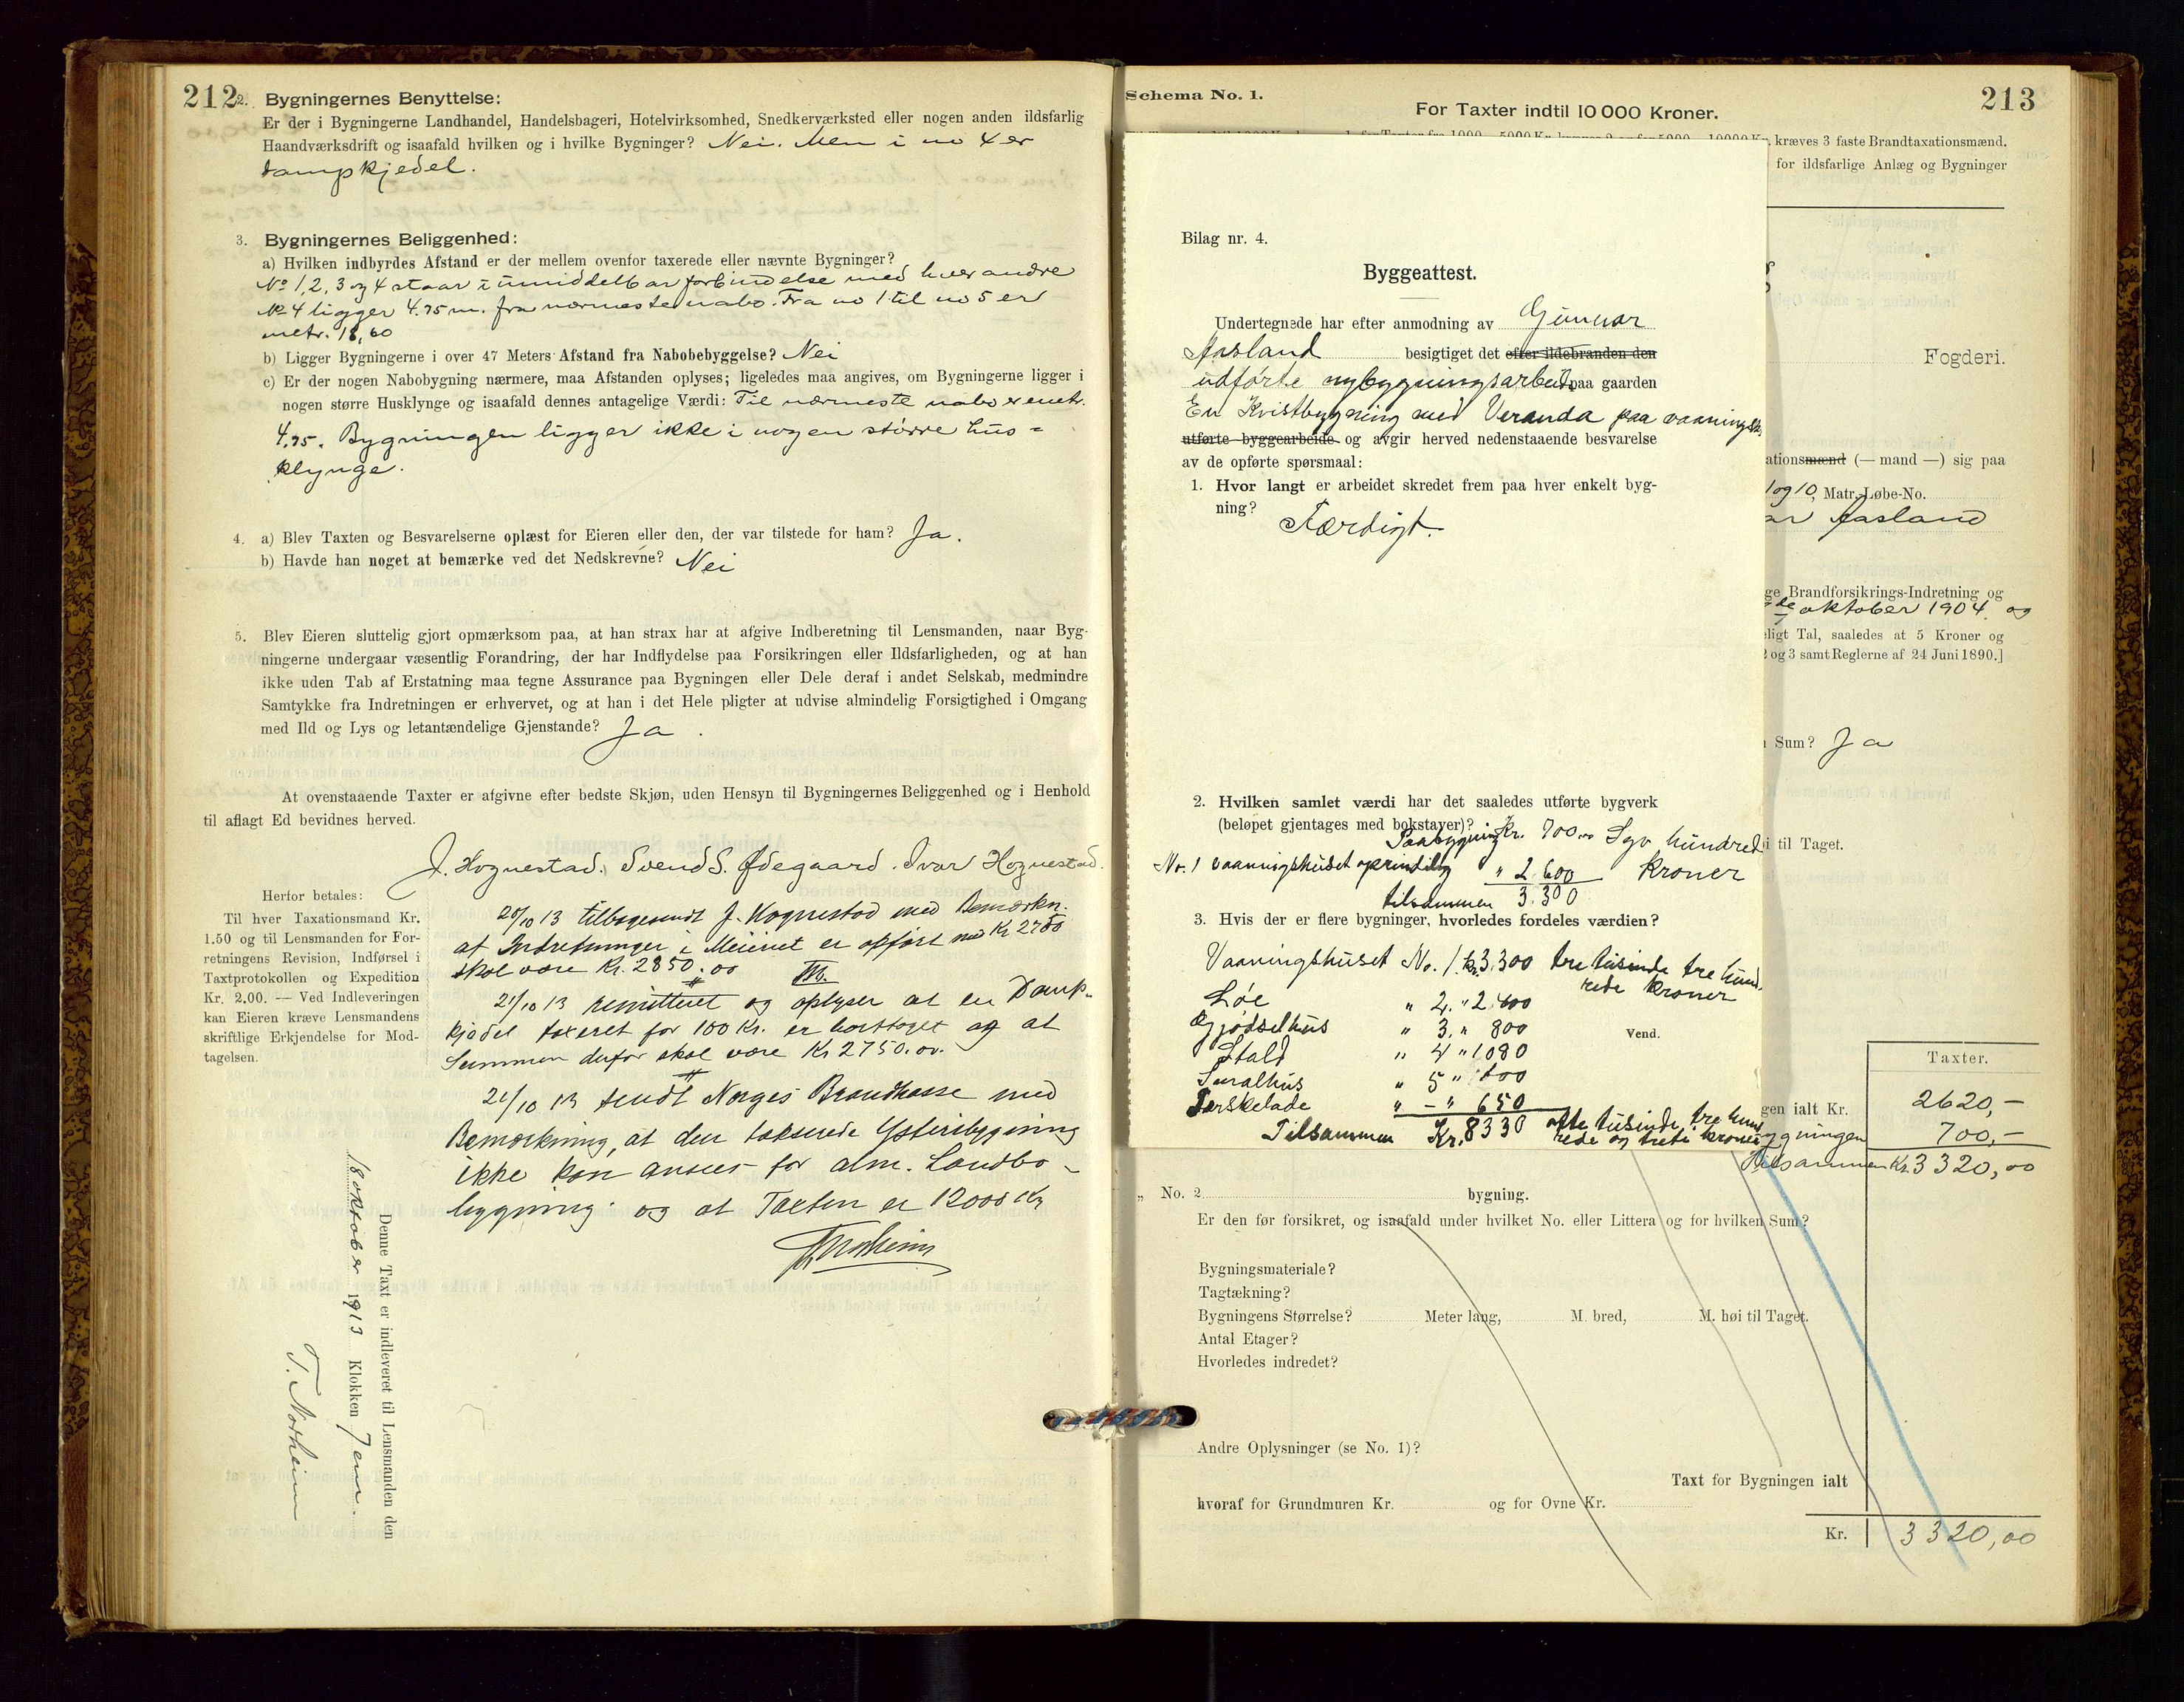 212
2. Bygningernes Benyttelse:
Er der i Bygningerne Landhandel, Handelsbageri, Hotelvirksomhed, Snedkerværksted eller nogen anden ildsfarlig
Haandværksdrift og isaafald hvilken og i hvilke Bygninger? Nei. Men i no 4 er
dampkjedel.
3. Bygningernes Beliggenhed:
a) Hvilken indbyrdes Afstand er der mellem ovenfor taxerede eller nævnte Bygninger?
No 1, 2, 3 og 4 staar i umiddelbar forbindelse med hverandre
No 4 ligger 4.75 m. fra nærmeste nabo. Fra no 1 til no 5 er
metr. 18,60
b) Ligger Bygningerne i over 47 Meters Afstand fra Nabobebyggelse? Nei
c) Er der nogen Nabobygning nærmere, maa Afstanden oplyses; ligeledes maa angives, om Bygningerne ligger i
nogen større Husklynge og isaafald dennes antagelige Værdi: Til nærmeste nabo er metr.
4.75. Bygningen ligger ikke i nogen større hus=
klynge.
4. a) Blev Taxten og Besvarelserne oplæst for Eieren eller den, der var tilstede for ham? Ja.
b) Havde han noget at bemærke ved det Nedskrevne? Nei
5. Blev Eieren sluttelig gjort opmærksom paa, at han strax har at afgive Indberetning til Lensmanden, naar Byg-
ningerne undergaar væsentlig Forandring, der har Indflydelse paa Forsikringen eller Ildsfarligheden, og at han
ikke uden Tab af Erstatning maa tegne Assurance paa Bygningen eller Dele deraf i andet Selskab, medmindre
Samtykke fra Indretningen er erhvervet, og at han i det Hele pligter at udvise almindelig Forsigtighed i Omgang
med Ild og Lys og letantændelige Gjenstande? Ja.
At ovenstaaende Taxter er afgivne efter bedste Skjøn, uden Hensyn til Bygningernes Beliggenhed og i Henhold
til aflagt Ed bevidnes herved.
J. Hognestad. Svend S. Ødegaard. Ivar Hognestad.
Herfor betales:
Til hver Taxationsmand Kr.
1.50 og til Lensmanden for For-
retningens Revision, Indførsel i
Taxtprotokollen og Expedition
Kr. 2.00. — Ved Indleveringen
kan Eieren kræve Lensmandens
skriftlige Erkjendelse for Mod-
tagelsen.
20/10 13 tilbagesendt J. Hognestad med Bemærkn.
at Indretninger i Meieriet er opført med Kr 2750
skal være Kr. 2850.00
21/10 13 remitteret og oplyser at en Damp-
kjedel taxeret for 100 Kr. er borttaget og at
Summen derfor skal være Kr 2750.00.
21/10 13 sendt Norges Brandkasse med
Bemærkning, at den takserede Ysteribygning
ikke kan ansees for alm. Landbo-
bygning og at Taxten er 12000 Kr
T. Norheim
Denne Taxt er indleveret til Lensmanden den
18 oktober 1913 Klokken 7 em.
T. Norheim
Schema No. 1.
213
For Taxter indtil 10 000 Kroner.
kræves 3 faste Brandtaxationsmænd.
for ildsfarlige Anlæg og Bygninger
Fogderi.
ationsmænd (— mand —) sig paa
1 og 10, Matr.-Løbe-No.
ar Aasland
ge Brandforsikrings-Indretning og
de oktober 1904 og
eligt Tal, saaledes at 5 Kroner og
2 og 3 samt Reglerne af 24 Juni 1890.]
Sum? Ja
i til Taget.
Bilag nr. 4.
Byggeattest.
Undertegnede har efter anmodning av Gunnar
Aasland besigtiget det efter ildebranden den
udførte nybygningsarbeide paa gaarden
En Kvistbygning med Veranda paa vaaningsh.
utførte byggearbeide og avgir herved nedenstaaende besvarelse
av de opførte spørsmaal:
1. Hvor langt er arbeidet skredet frem paa hver enkelt byg-
ning? Færdigt.
2. Hvilken samlet værdi har det saaledes utførte bygverk
(beløpet gjentages med bokstaver)?
Paabygning Kr. 700.00 Syv hundred
No. 1 vaaningshuset oprindelig " 2.600 Kroner
tilsammen 3.300
3. Hvis der er flere bygninger, hvorledes fordeles værdien?
Vaaningshuset No. 1. kr. 3.300 tre tusinde tre hund-
rede kroner
Løe " 2. "
Gjødselhus " 3. " 800
Stald " 4 " 1080
" 5 "
Tærskelade " - " 650
Tilsammen Kr. 8330 otte tusinde tre hund
rede og treti kroner
Vend.
Taxter.
gen ialt Kr. 2620,-
bygningen 700,-
Tilsammen Kr. 3320,00
" No. 2 bygning.
Er den før forsikret, og isaafald under hvilket No. eller Littera og for hvilken Sum?
Bygningsmateriale?
Tagtækning?
Bygningens Størrelse? Meter lang, M. bred, M. høi til Taget.
Antal Etager?
Hvorledes indredet?
Andre Oplysninger (se No. 1)?
Taxt for Bygningen ialt
hvoraf for Grundmuren Kr. og for Ovne Kr.
Kr. 3320,00